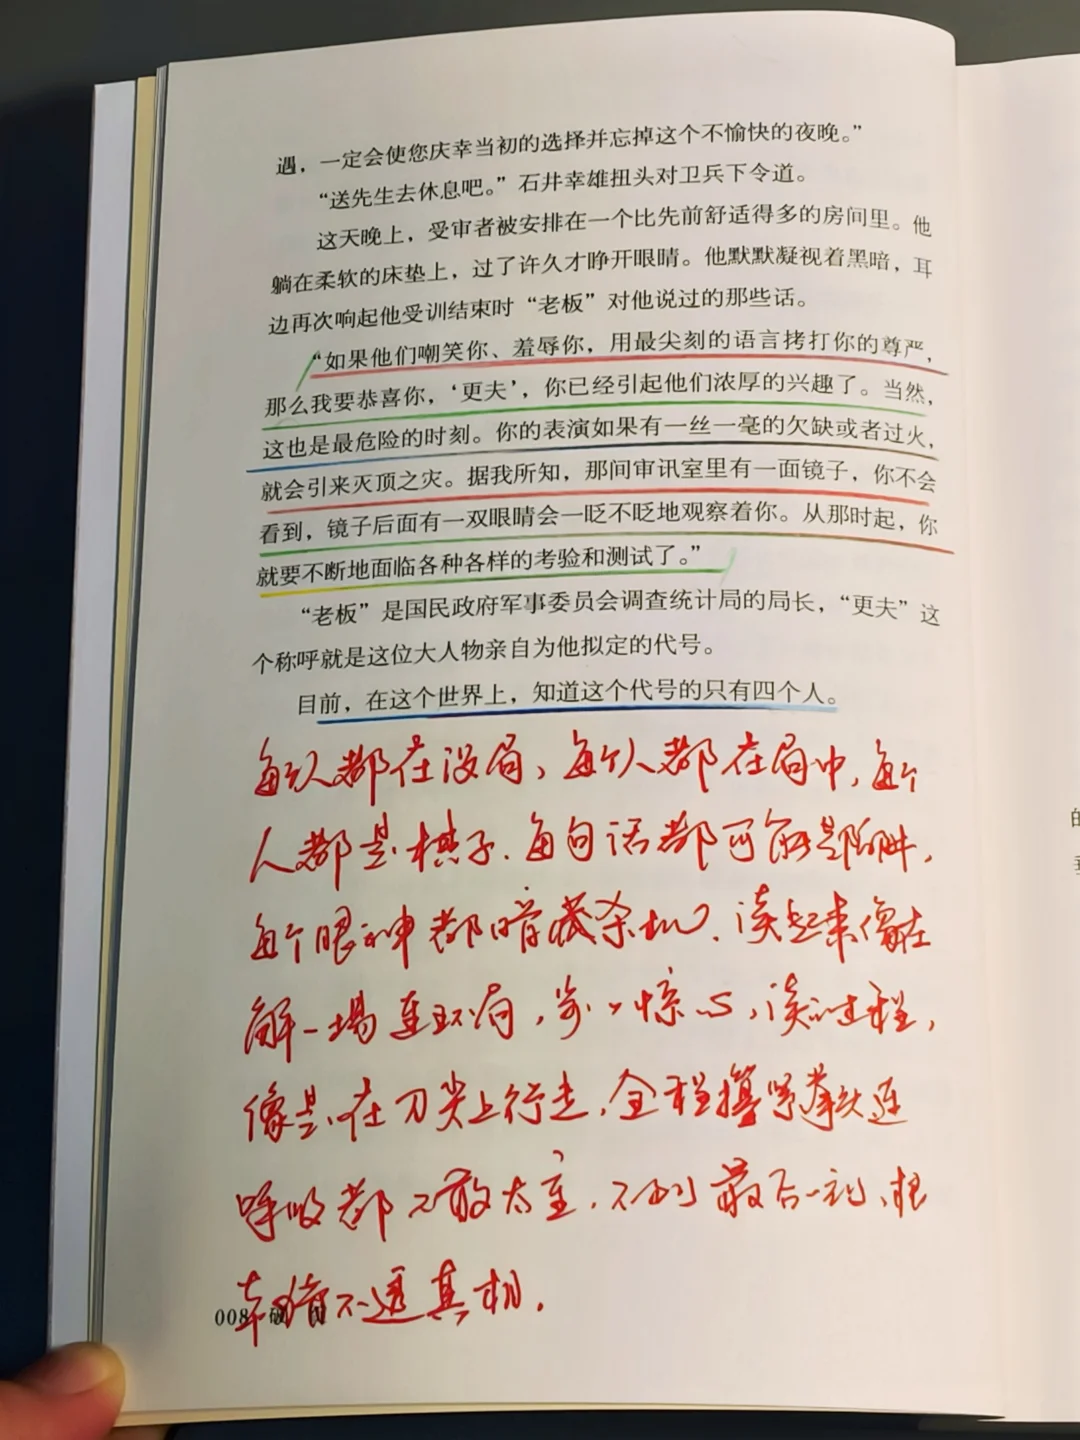 遇，一定会使您庆幸当初的选择并忘掉这个不愉快的夜晚。”
“送先生去休息吧。”石井幸雄扭头对卫兵下令道。
这天晚上，受审者被安排在一个比先前舒适得多的房间里。他
躺在柔软的床垫上，过了许久才睁开眼睛。他默默凝视着黑暗，耳
边再次响起他受训结束时“老板”对他说过的那些话。
“如果他们嘲笑你、羞辱你，用最尖刻的语言拷打你的尊严，
那么我要恭喜你，‘更夫’，你已经引起他们浓厚的兴趣了。当然，
这也是最危险的时刻。你的表演如果有一丝一毫的欠缺或者过火，
就会引来灭顶之灾。据我所知，那间审讯室里有一面镜子，你不会
看到，镜子后面有一双眼睛会一眨不眨地观察着你。从那时起，你
就要不断地面临各种各样的考验和测试了。”
“老板”是国民政府军事委员会调查统计局的局长，“更夫”这
个称呼就是这位大人物亲自为他拟定的代号。
目前，在这个世界上，知道这个代号的只有四个人。
每个人都在设局、每个人都在局中，每个
人都是棋子、每句话都可能是陷阱，
每个眼神都暗藏杀机、读起来像在
解一场连环局，步步惊心，读的过程，
像是在刀尖上行走，全程攥紧拳头连
呼吸都不敢太重，不到最后一刻、根
本猜不透真相．
008